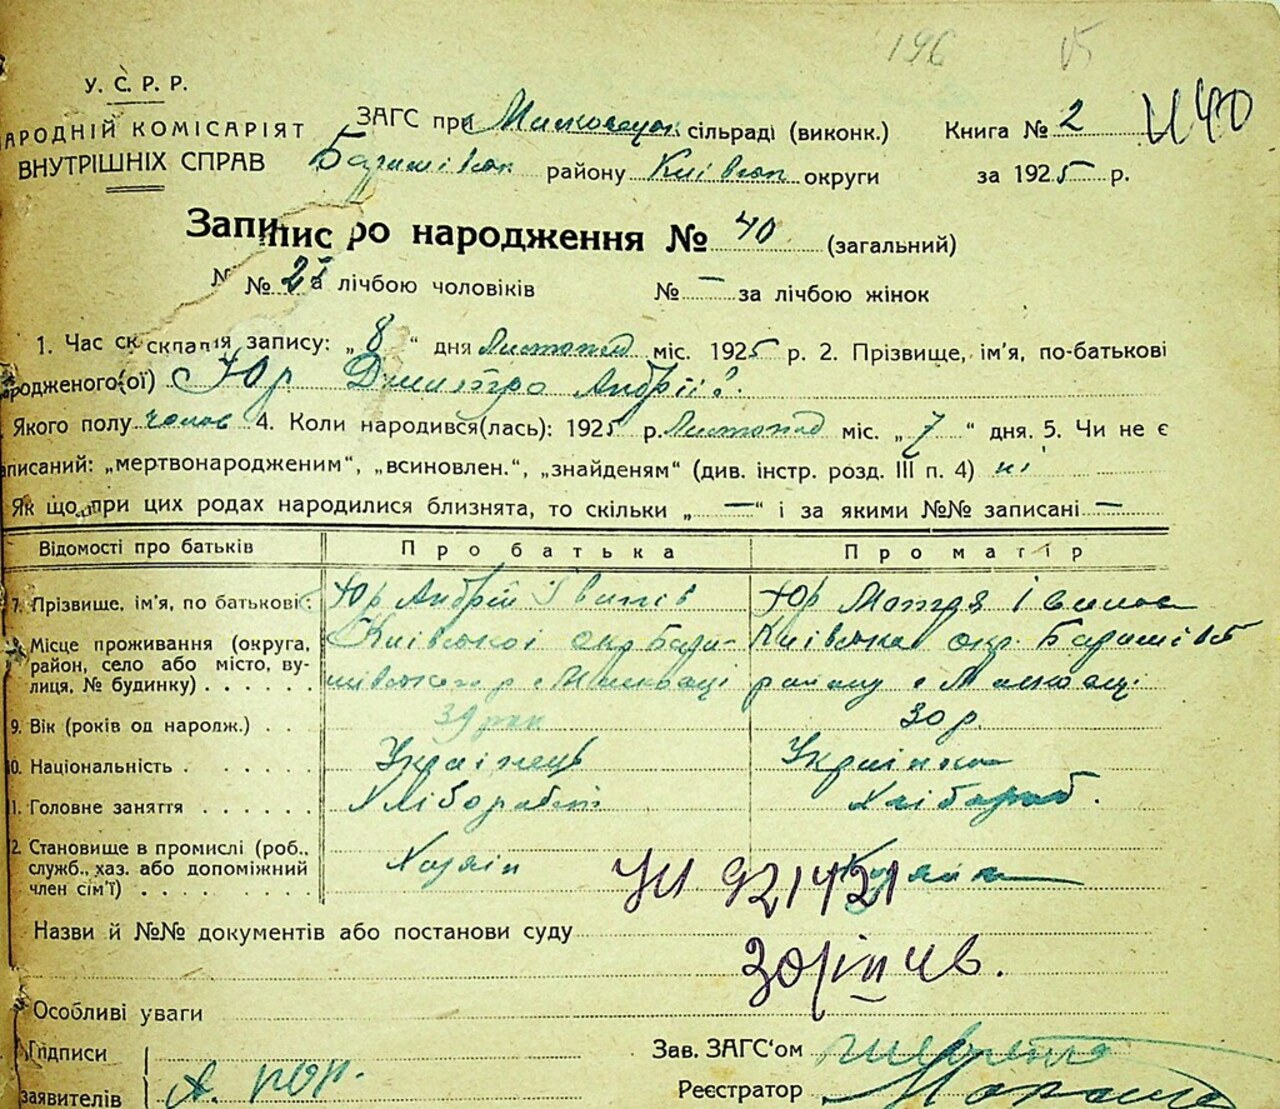 196 15
У. С. Р. Р.
АРОДНІЙ КОМІСАРІЯТ
ВНУТРІШНІХ СПРАВ
ЗАГС при сільраді (виконк.)
району Київськ округи
Книга № 2
за 1925 р.
И40
Запис про народження № 40 (загальний)
№ 21 за лічбою чоловіків № — за лічбою жінок
1. Час складання запису: „ 8 “ дня Листопад міс. 1925 р. 2. Прізвище, ім'я, по-батькові
родженого(ої) Юр Дмитро Андрії
Якого полу чолов 4. Коли народився(лась): 1925 р. Листопад міс. „ 7 “ дня. 5. Чи не є
аписаний: „мертвонародженим“, „всиновлен.“, „знайденям“ (див. інстр. розд. III п. 4) ні
Як що при цих родах народилися близнята, то скільки „ — “ і за якими №№ записані —
Відомості про батьків Про батька Про матір
7. Прізвище, ім'я, по батькові: Юр Андрій Іванів Юр Мотря Іванов
8. Місце проживання (округа, Київської окр Бари- Київська окр. Баришівс
район, село або місто, ву- шівського р с району с
лиця, № будинку)
9. Вік (років од народж.) 39 рок 30 р.
10. Національність Українець Українка
1. Головне заняття Хлібороб Хлібороб.
2. Становище в промислі (роб., Хазяїн
служб., хаз. або допоміжний
член сім'ї)
УИ 921421
Назви й №№ документів або постанови суду
Особливі уваги
Підписи
заявителів А. Юр.
Зав. ЗАГС'ом
Реєстратор